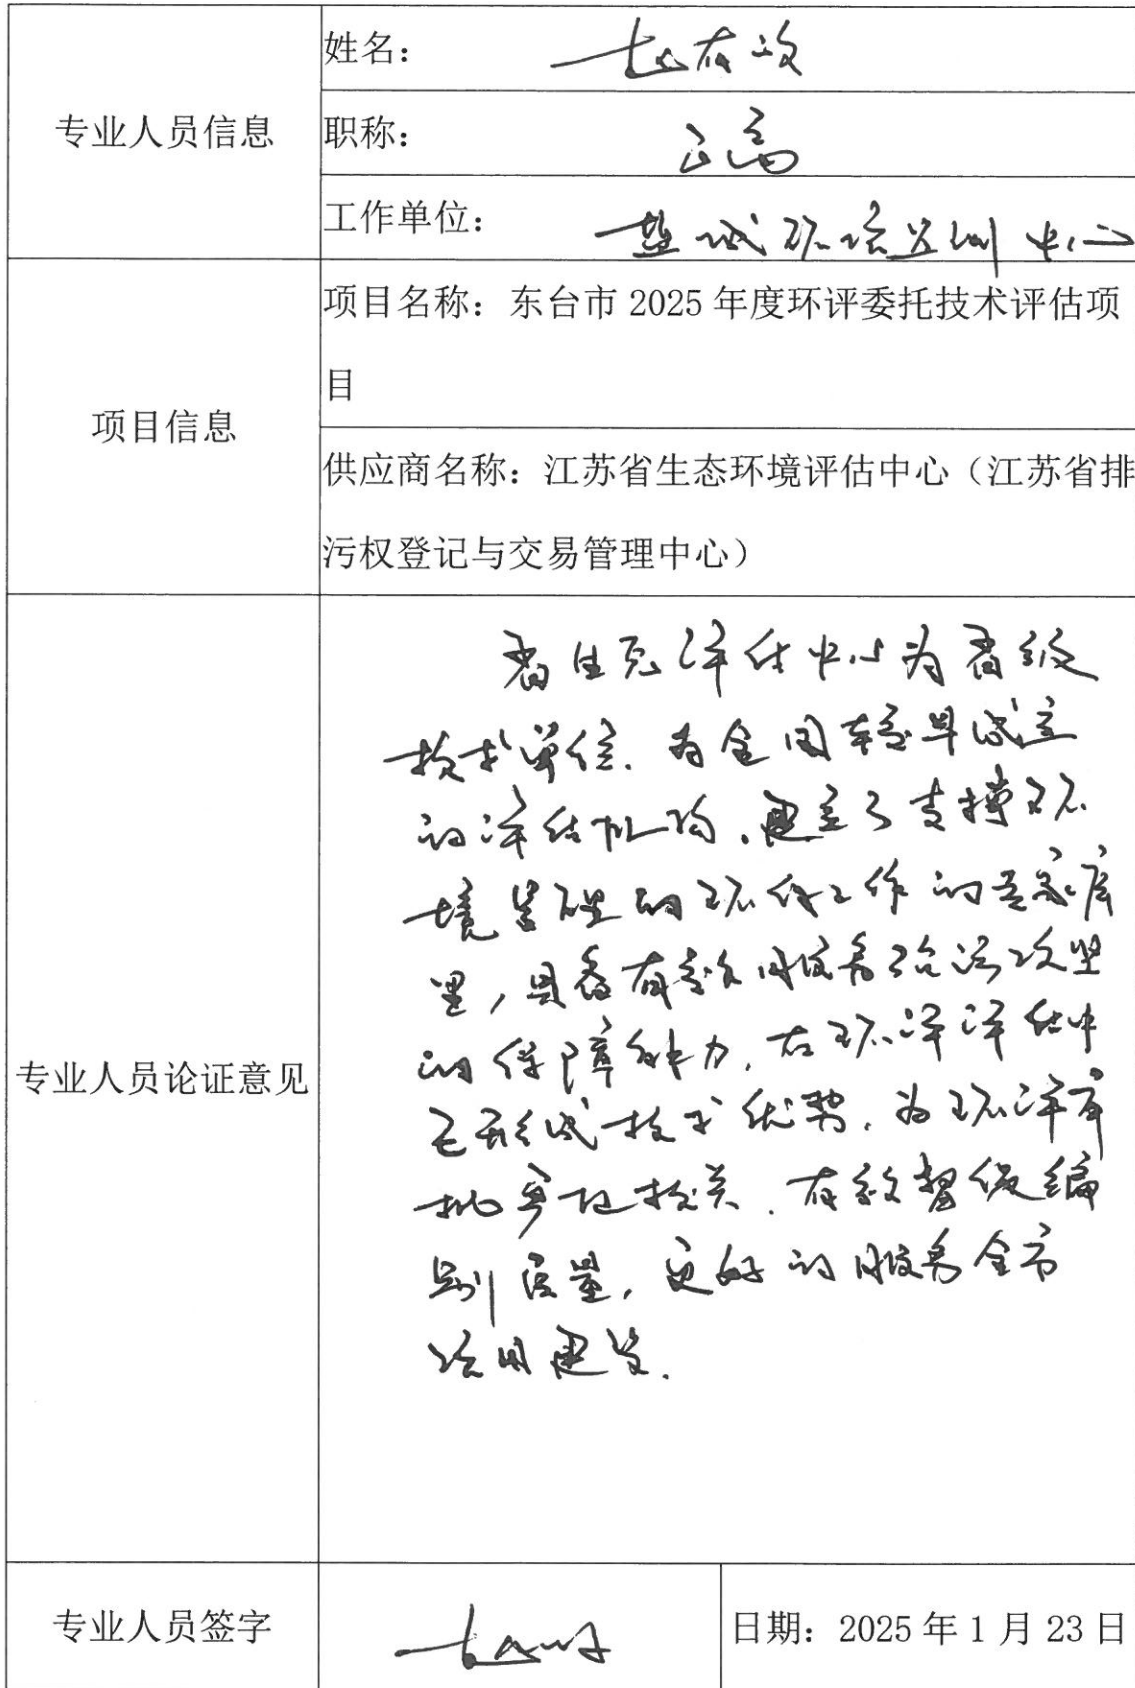 专业人员信息
姓名：
职称：正高
工作单位：盐城环境监测中心
项目信息
项目名称：东台市 2025 年度环评委托技术评估项
目
供应商名称：江苏省生态环境评估中心（江苏省排
污权登记与交易管理中心）
专业人员论证意见
省生态评估中心为省级
技术单位、为全国较早成立
的评估机构，建立了支撑环
境管理的环保工作的专家库
，具备有效服务治污攻坚
的保障能力，在环评评估中
已形成技术优势，为环评审
批严把关、有效督促编
制质量，更好的服务全市
项目建设.
专业人员签字
日期：2025 年 1 月 23 日